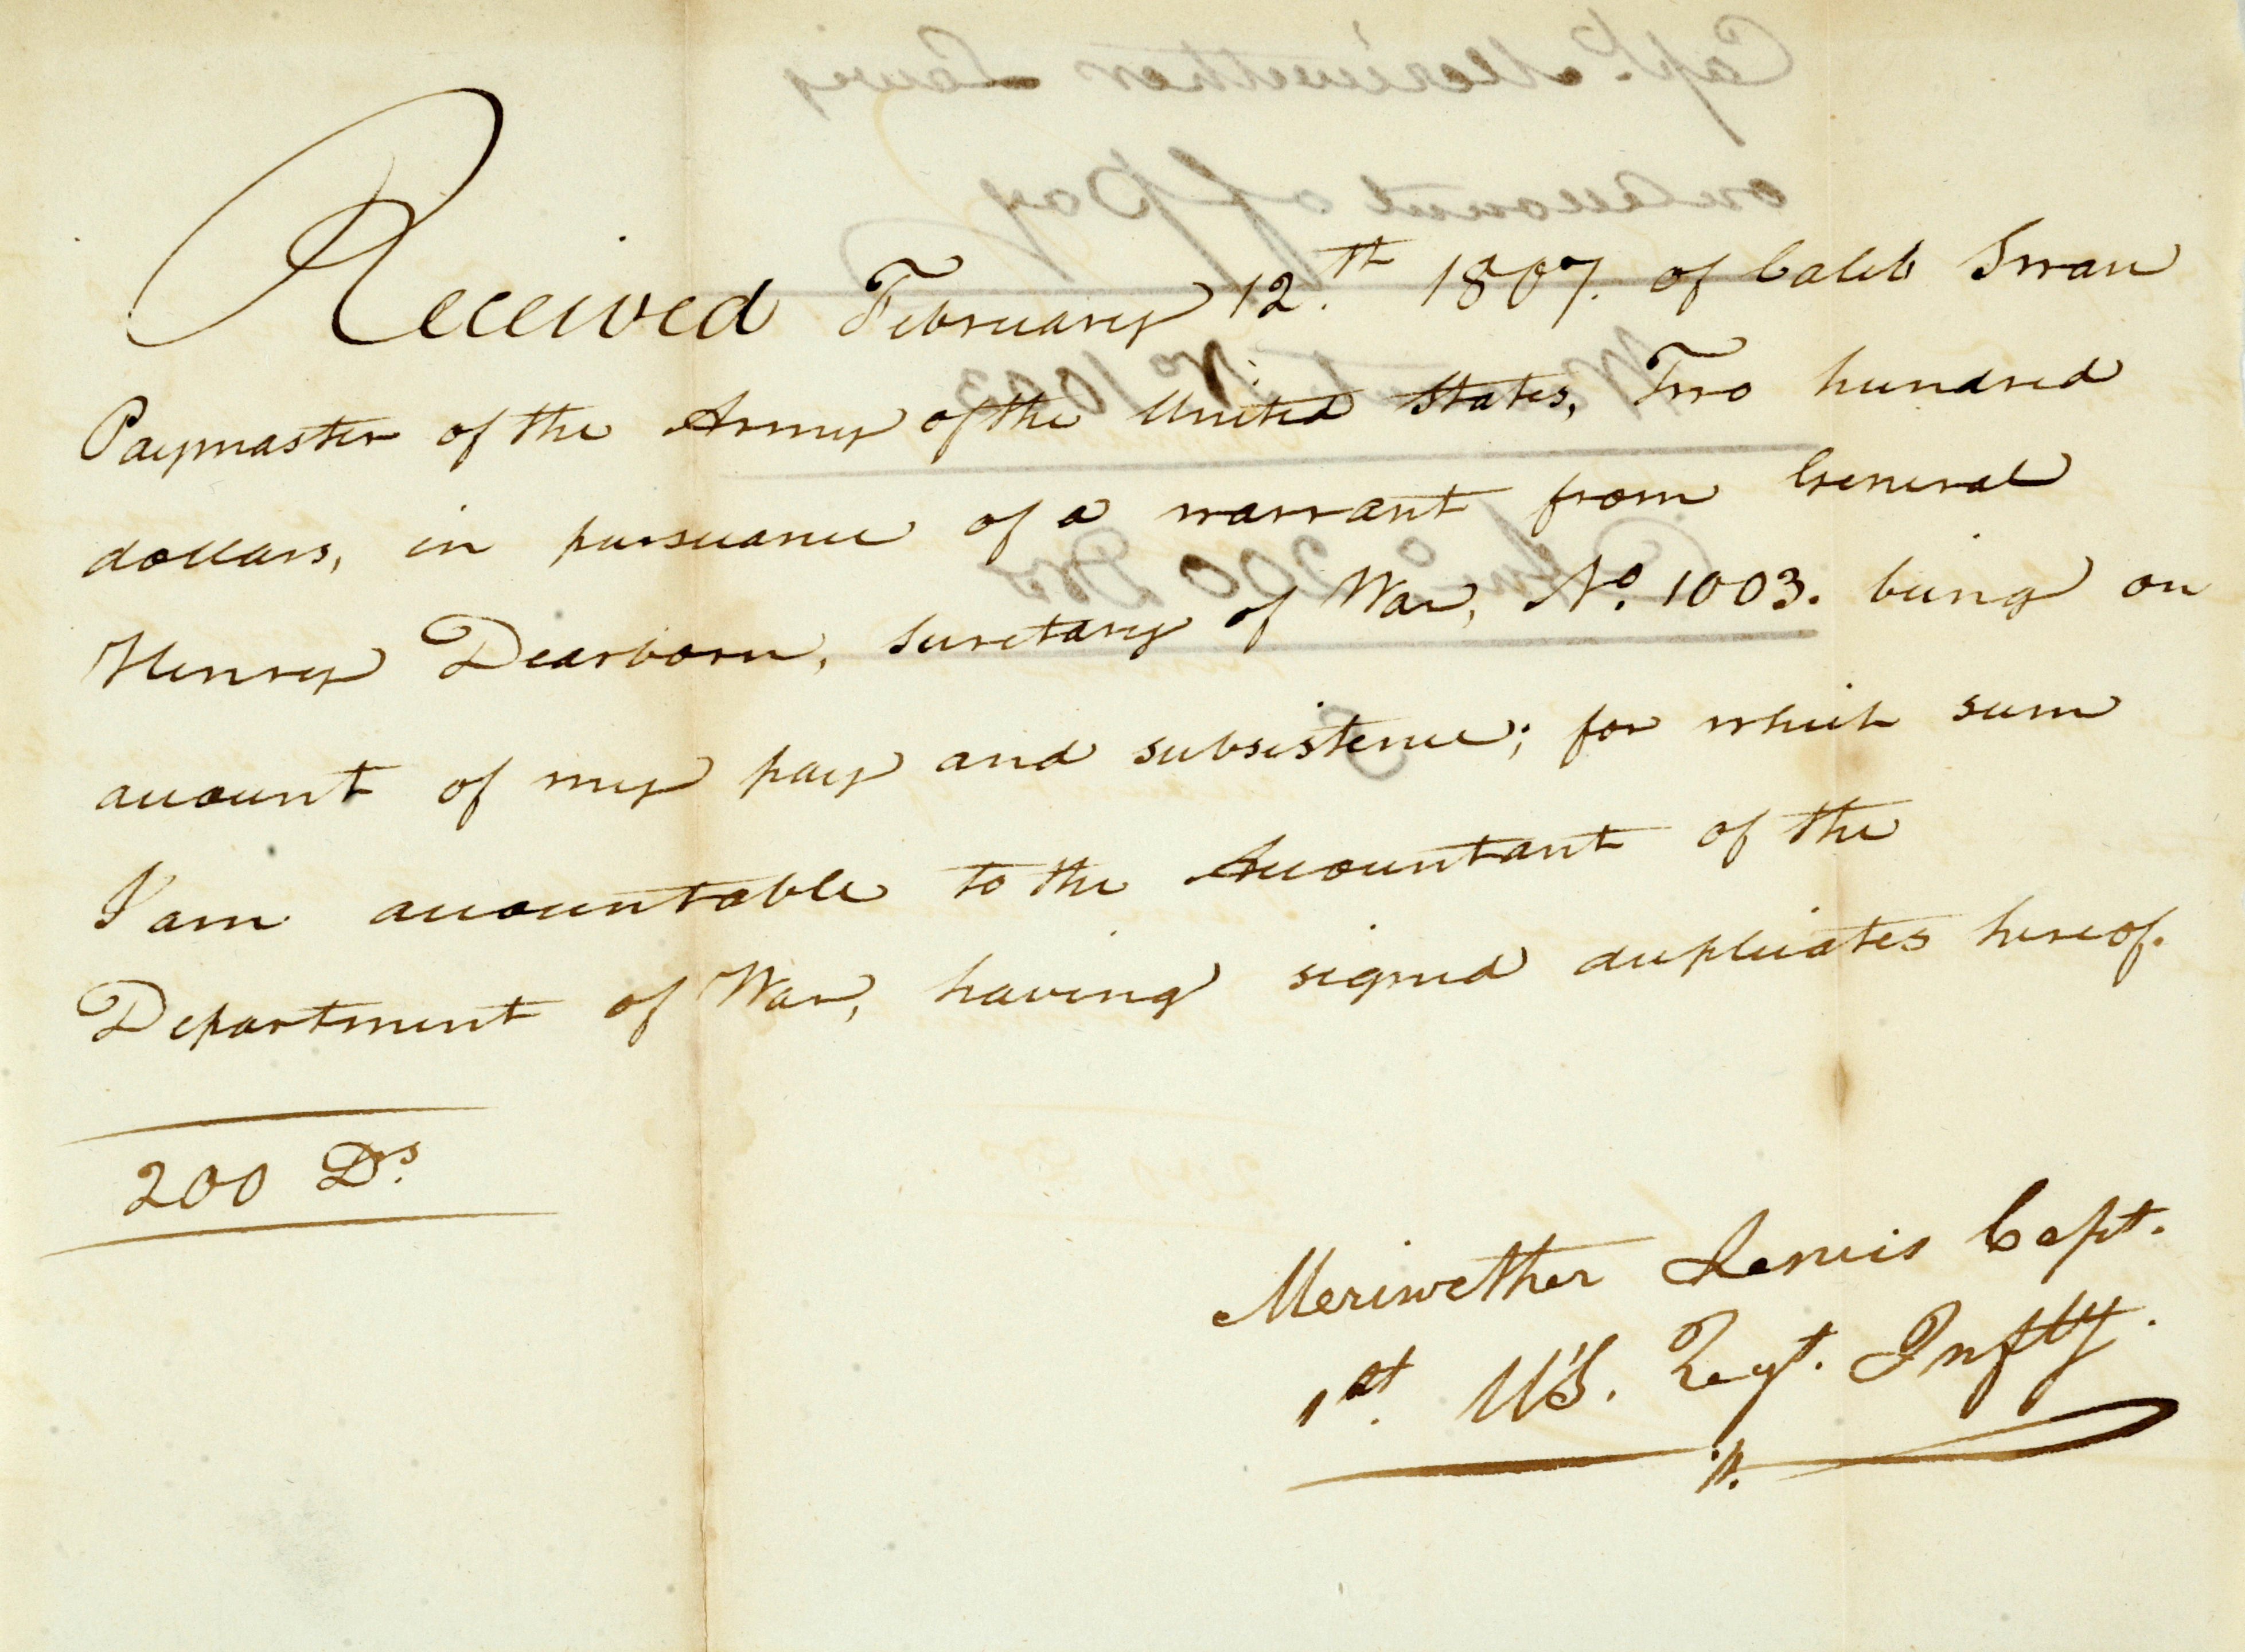 Received February 12th. 1807. of Caleb Swan
Paymaster of the Army of the United States, Two hundred
dollars, in pursuance of a warrant from General
Henry Dearborn, Secretary of War, No. 1003. being on
account of my pay and subsistence; for which sum
I am accountable to the Accountant of the
Department of War, having signed duplicates hereof.
200 Ds.
Meriwether Lewis Capt.
1st. U'S. Regt. Infty.
Capt. Meriwether Lewis
on account of Pay
Warrant No 1003
200 Drs